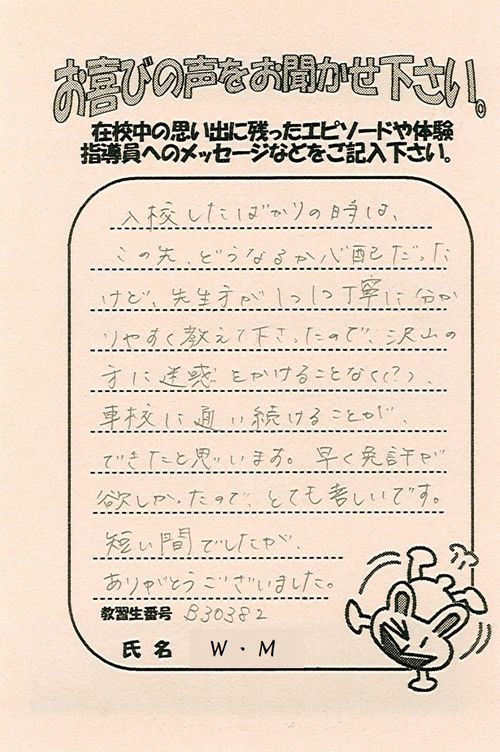 お喜びの声をお聞かせ下さい。
©
在校中の思い出に残ったエピソードや体験
指導員へのメッセージなどをご記入下さい。
入校したばかりの時は、
この先、どうなるか心配だった
けど、先生方が1つ1つ丁寧に分か
りやすく教えて下さったので、沢山の
方に迷惑をかけることなく(?)、
車校に通い続けることが、
できたと思います。早く免許が
欲しかったので、とても嬉しいです。
短い間でしたが、
ありがとうございました。
教習生番号 B30382
氏名 W・M